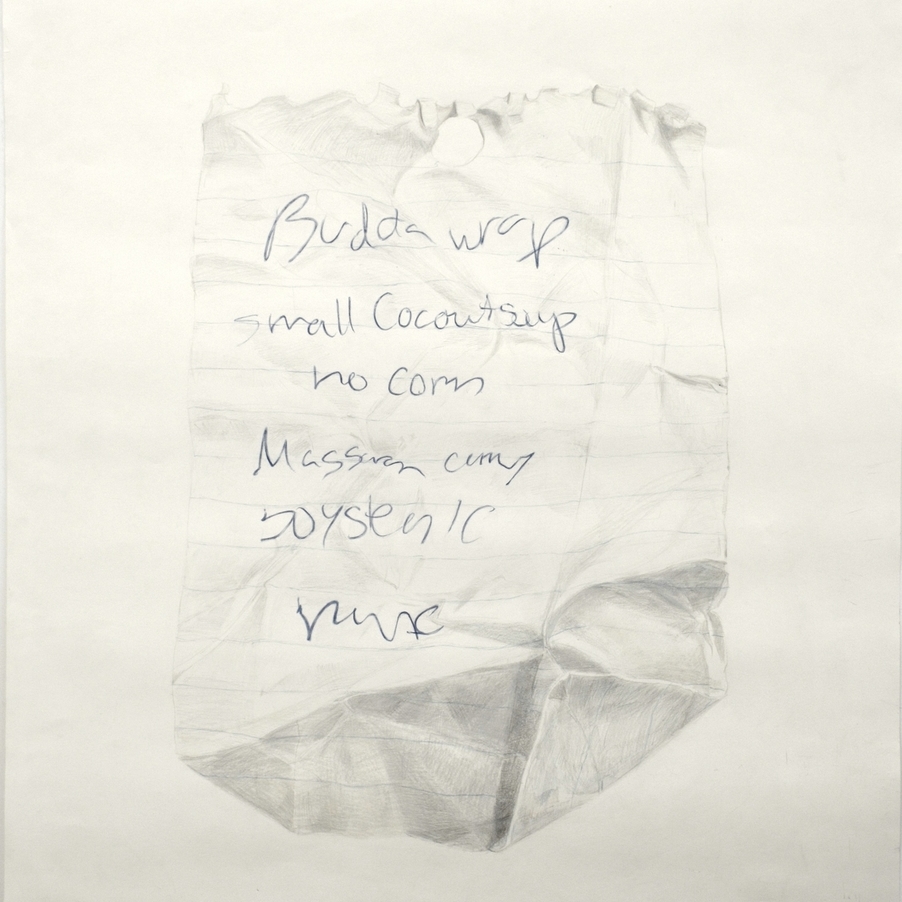 Budda wrap
small Cocout sup
no corn
Massman curry